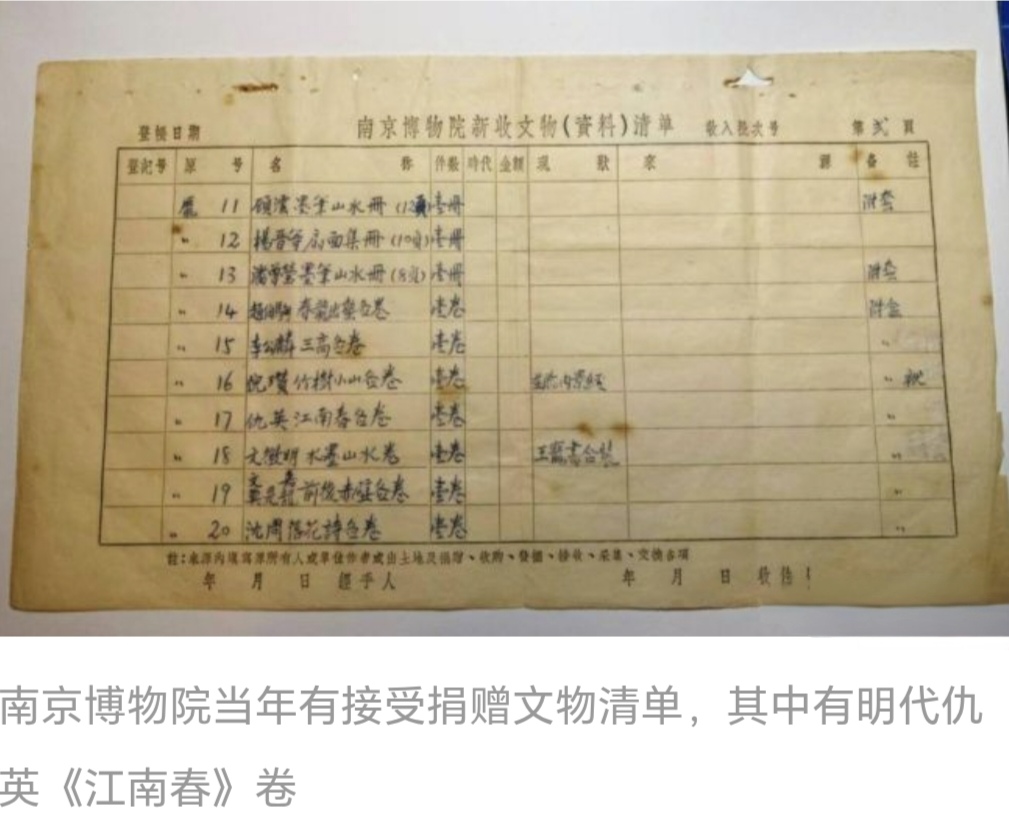 登帳日期 南京博物院新收文物(資料)清单 收入批次号 第贰頁
登記号 原号 名称 件数 時代 金額 現狀 來源 备註
11 墨笔山水冊 壹冊 附套
〃 12 楊晋等扇面集冊 (10页) 壹冊
〃 13 墨笔山水冊 (8页) 壹冊 附套
〃 14 卷 壹卷 附盒
〃 15 李公麟三高卷 壹卷 〃
〃 16 倪瓚竹樹小山卷 壹卷 〃
〃 17 仇英江南春卷 壹卷 〃
〃 18 文徵明水墨山水卷 壹卷 〃
〃 19 前後赤壁卷 壹卷 〃
〃 20 沈周落花詩卷 壹卷 〃
註:來源內填寫原所有人或單位作者或出土地及捐贈、收購、發掘、接收、采集、交換各項
年 月 日 經手人 年 月 日 收
南京博物院当年有接受捐赠文物清单，其中有明代仇
英《江南春》卷